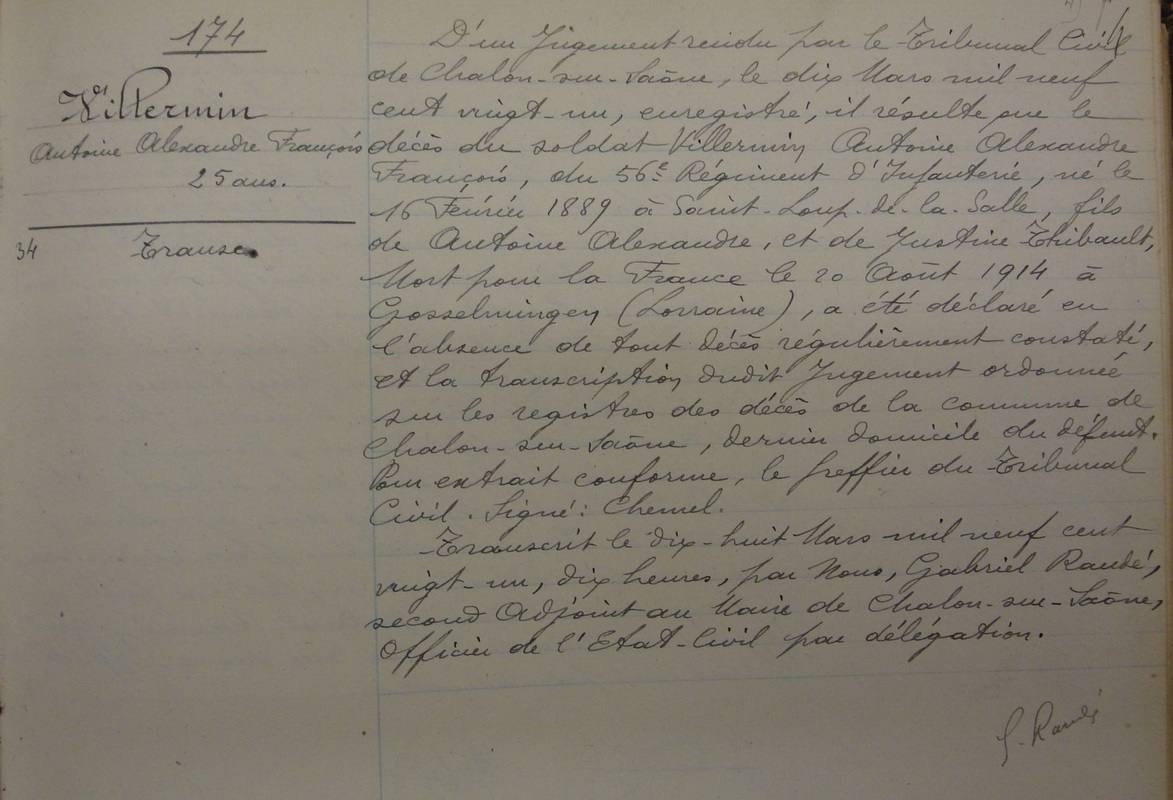 174
Villermin
Antoine Alexandre François
25 ans.
34
Transc
D'un Jugement rendu par le Tribunal Civil
de Chalon-sur-Saône, le dix Mars mil neuf
cent vingt-un, enregistré, il résulte que le
décès du soldat Villermin Antoine Alexandre
François, du 56e Régiment d'Infanterie, né le
16 Février 1889 à Saint-Loup-de-la-Salle, fils
de Antoine Alexandre, et de Justine Thibault,
Mort pour la France le 20 Août 1914 à
Gosselmingen (Lorraine), a été déclaré en
l'absence de tout décès régulièrement constaté,
et la transcription dudit Jugement ordonnée
sur les registres des décès de la commune de
Chalon-sur-Saône, dernier domicile du défunt.
Pour extrait conforme, le Greffier du Tribunal
Civil. Signé: Chemel.
Transcrit le dix-huit Mars mil neuf cent
vingt-un, dix heures, par Nous, Gabriel Raudé,
second Adjoint au Maire de Chalon-sur-Saône,
Officier de l'Etat-Civil par délégation.
G. Raudé